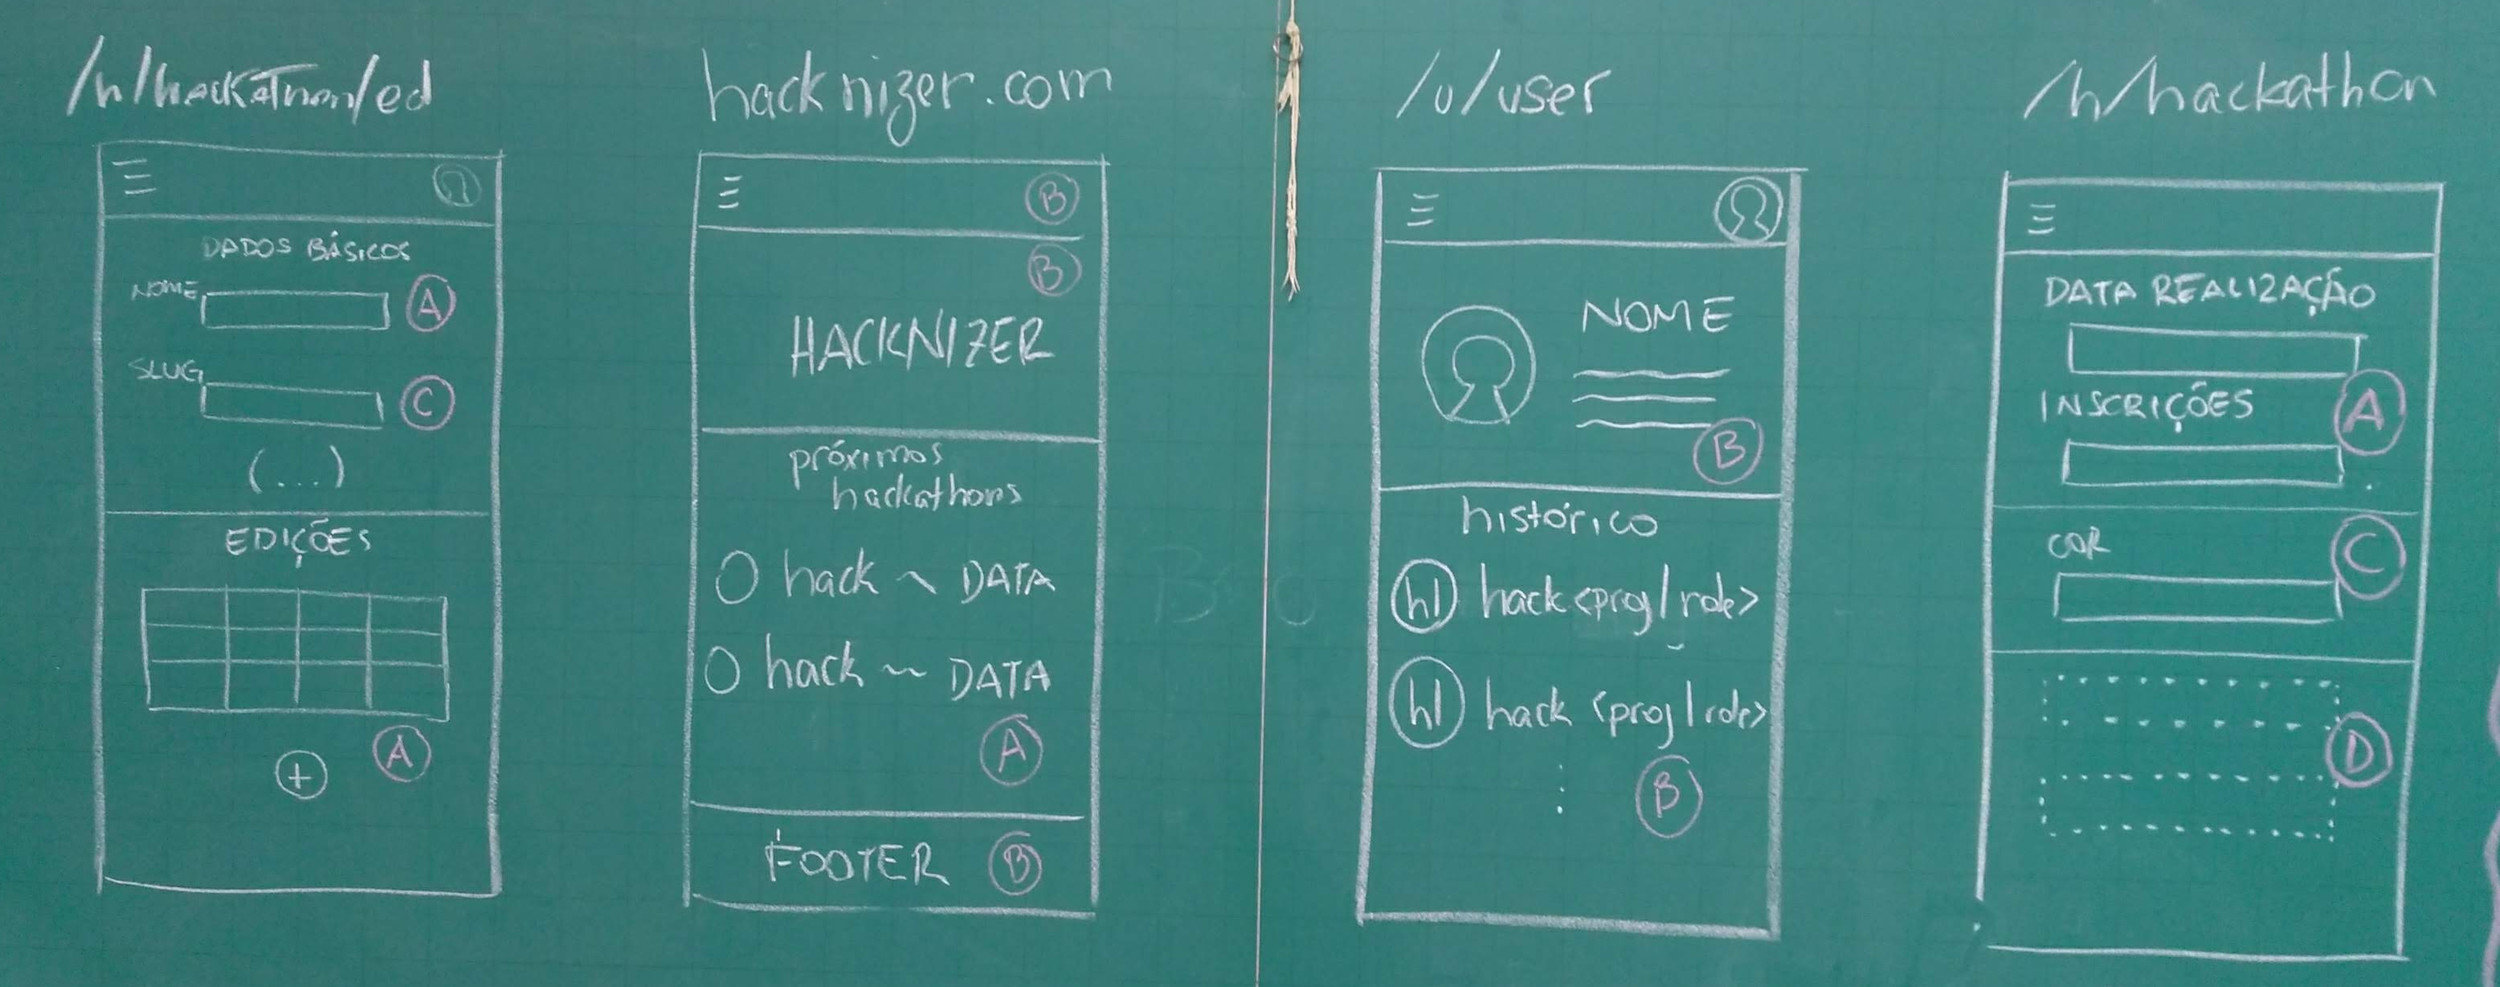 /h/hackathon/ed
DADOS BÁSICOS
NOME
A
SLUG
C
(...)
EDIÇÕES
+
A
hacknizer.com
B
B
HACKNIZER
próximos
hackathons
hack ~ DATA
hack ~ DATA
A
FOOTER
B
/u/user
NOME
B
histórico
h| hack <proj/role>
h| hack <proj/role>
B
/h/hackathon
DATA REALIZAÇÃO
INSCRIÇÕES
A
COR
C
D